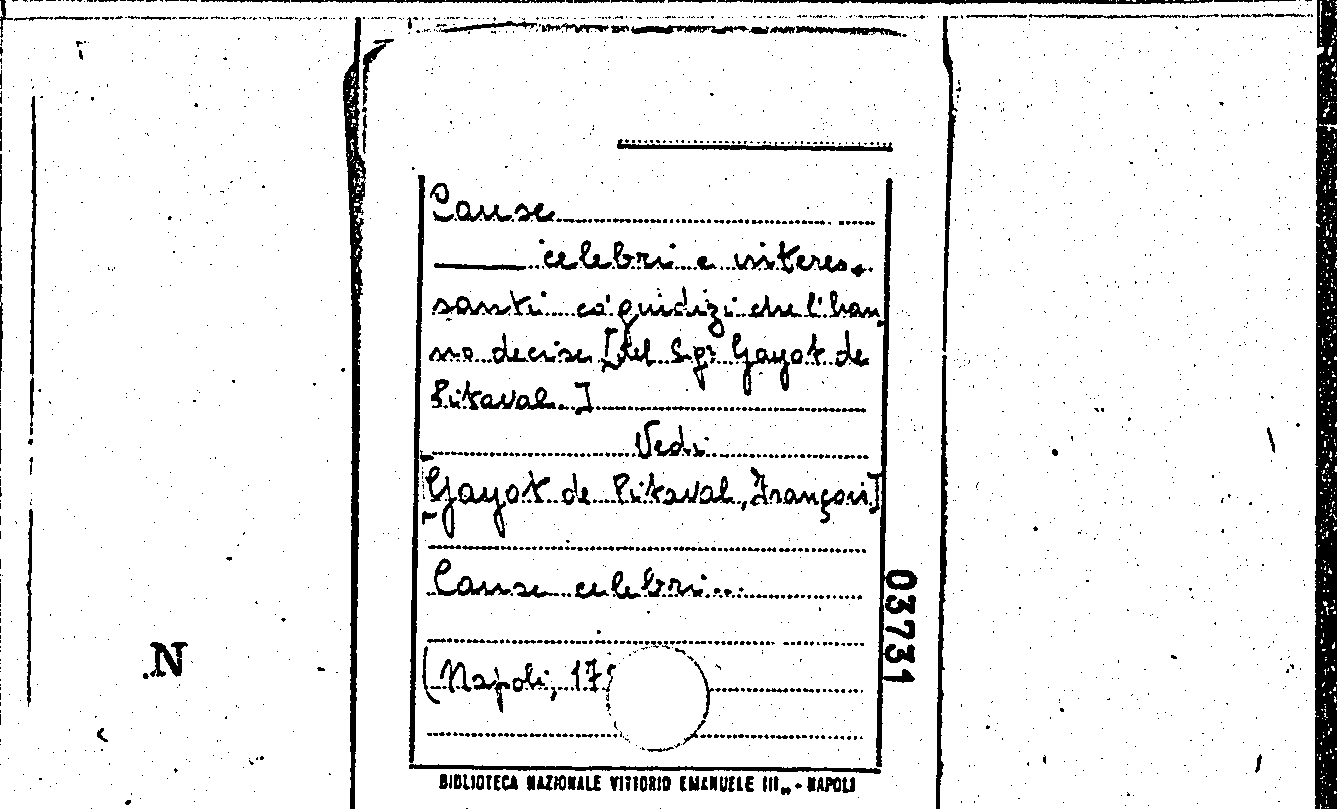 Cause
celebri e interes-
santi co' giudizi che l'han
no decise [del Sgr Gayot de
Pitaval.]
Vedi
[Gayot de Pitaval, François]
Cause celebri...
(Napoli, 17
03731
N
BIBLIOTECA NAZIONALE VITTORIO EMANUELE III„ - NAPOLI